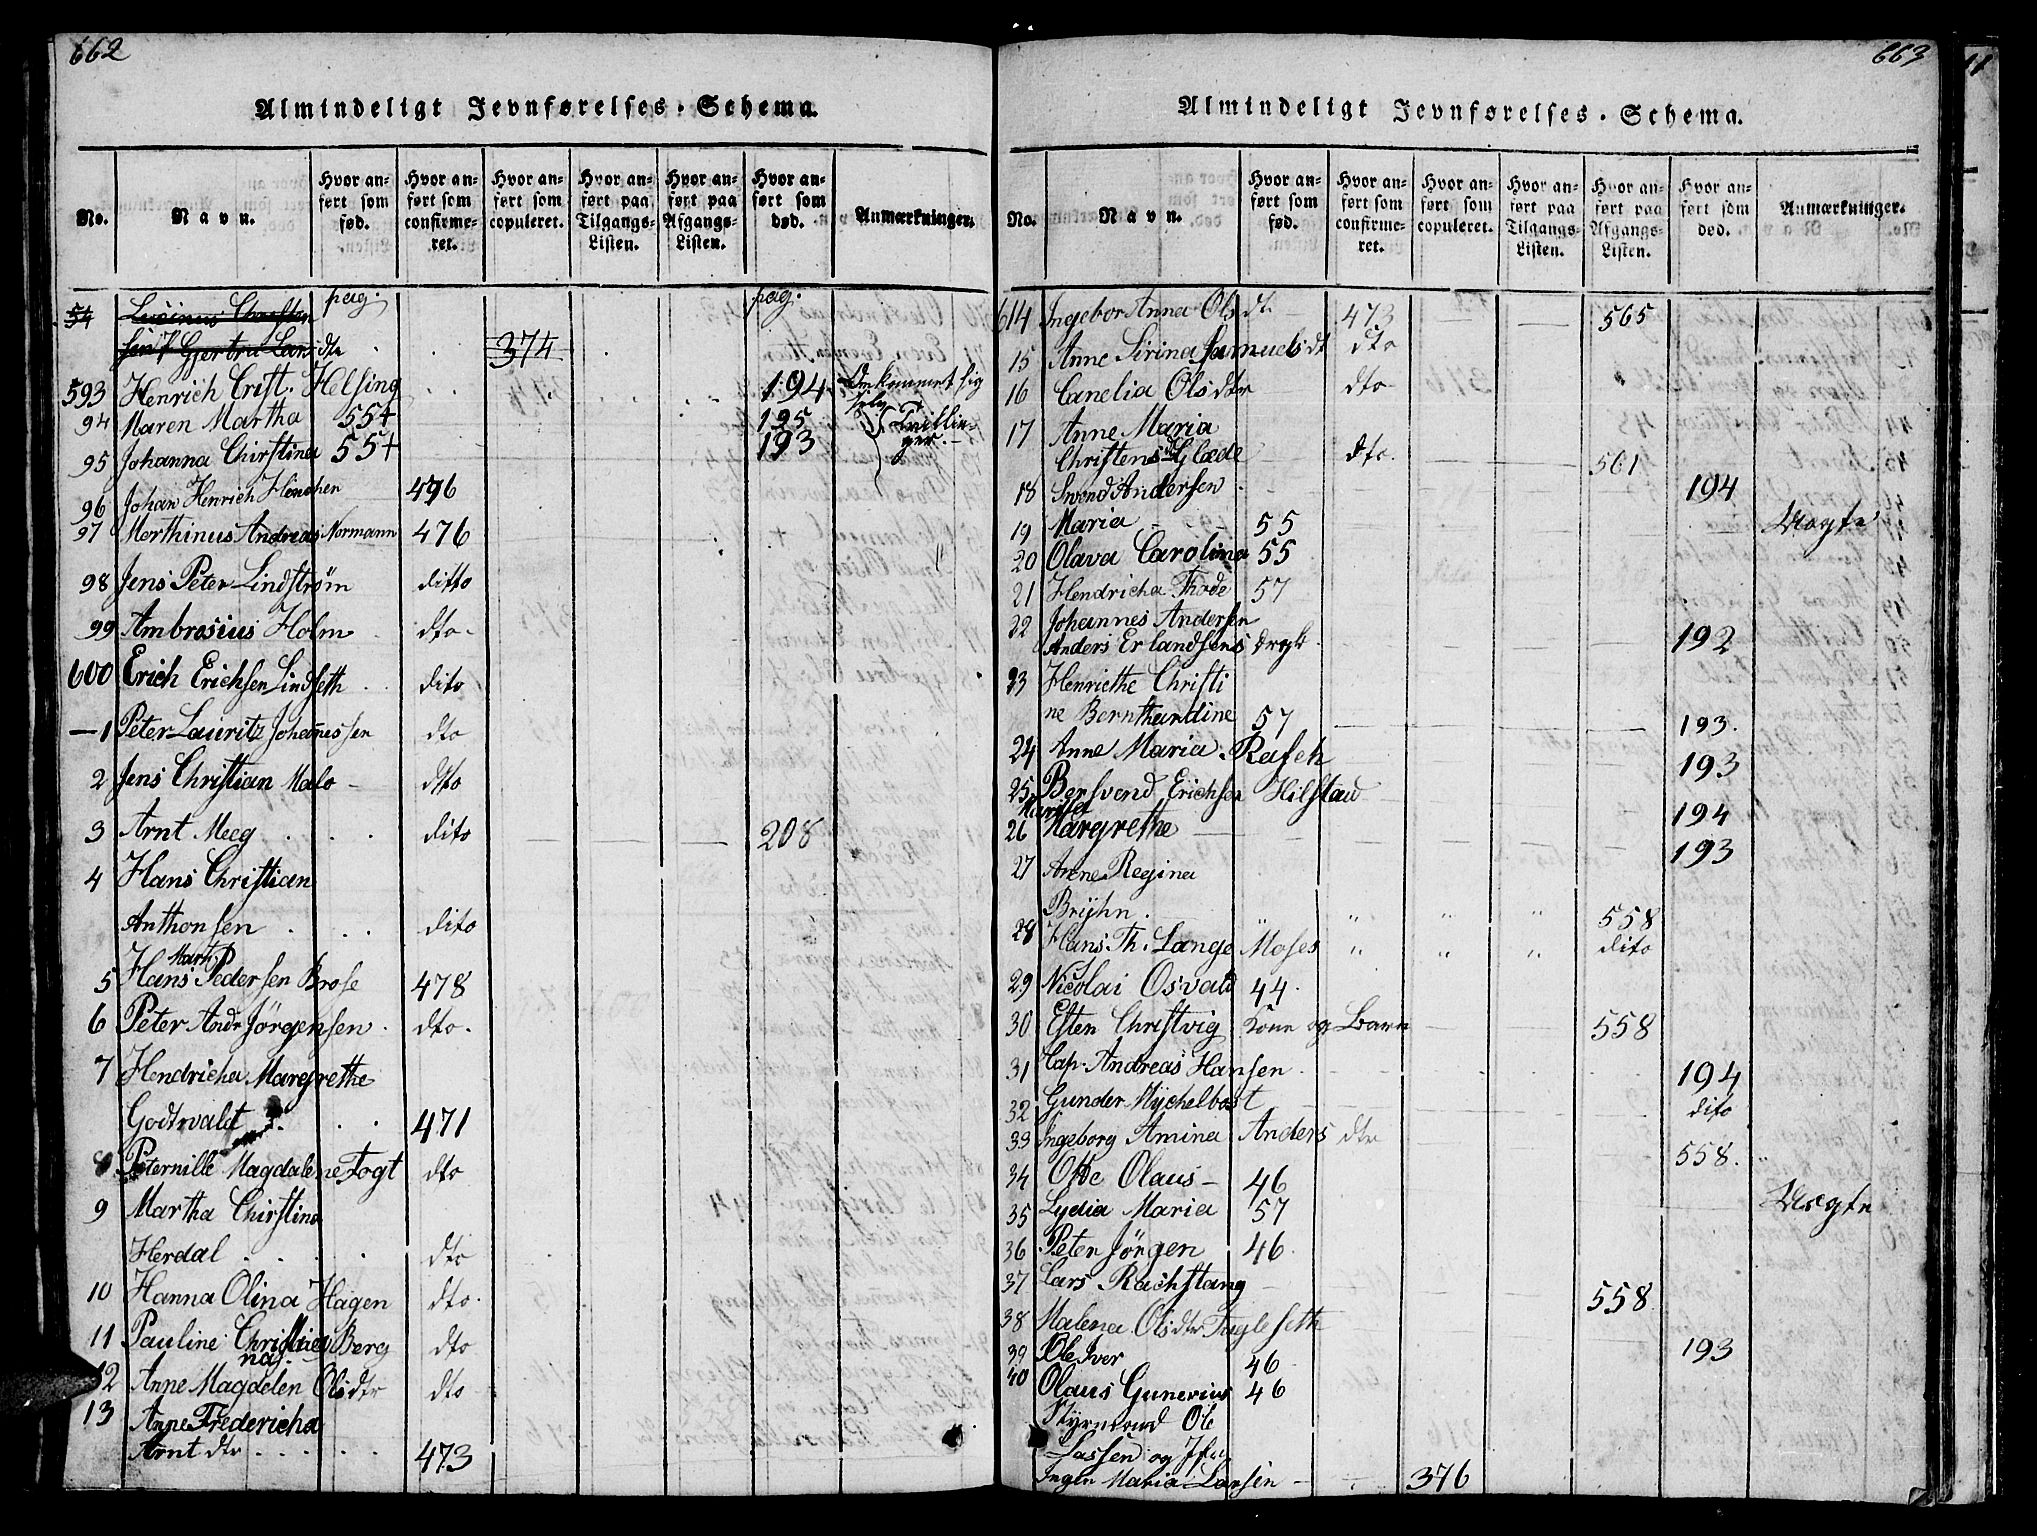 662
Almindeligt Jevnførelses-Schema.
No.
Navn.
Hvor anført som fød.
Hvor anført som confirmeret.
Hvor anført som copuleret.
Hvor anført paa Tilgangs-Listen.
Hvor anført paa Afgangs-Listen.
Hvor anført som død.
Anmærkninger.
pag. pag.
54 Lucinus Christen
Gjertru Lars dtr 374
593 Henrich Crist. Helsing 194 Omkommet sig selv
94 Maren Martha 55+ 195 Tvillin-
95 Johanna Chirstina 55+ 193 ger.
96 Johan Henrich Hinchen 496
97 Morthinus Andreas Normann 476
98 Jens Peter Lindstrøm ditto
99 Ambrosius Holm dto.
600 Erich Erichsen Lindseth dito
1 Peter Lauritz Johannessen dto
2 Jens Christian Malo dtto
3 Arnt Meeg dito 208
4 Hans Christian
Anthonsen dito
Mart.
5 Hans Pedersen Brose 478
6 Peter Andr Jörgensen dto.
7 Hendricha Margrethe
Godtvaldt 471
8 Peternille Magdalene Fogt dto
9 Martha Chirstina
Herdal dto
10 Hanna Olina Hagen dto.
11 Pauline Christia Berg dto
na
12 Anne Magdelen Olsdtr dto
13 Anne Fredericha
Arnt dtr 473
663
Almindeligt Jevnførelses-Schema.
No.
Navn.
Hvor anført som fød.
Hvor anført som confirmeret.
Hvor anført som copuleret.
Hvor anført paa Tilgangs-Listen.
Hvor anført paa Afgangs-Listen.
Hvor anført som død.
Anmærkninger.
614 Ingebor Anna Ols dt. 473 565
15 Anne Sirina Samuels dt dto
16 Canelia Olsdtr dto
17 Anne Maria
Christens Glæde dto. 561
18 Svend Andersen 194
19 Maria 55 Uægte
20 Olava Carolina 55
21 Hendricha Thode 57
22 Johannes Andersen
Anders Erlandsens 192
23 Henriethe Christi
ne Bernthardine 57 193.
24 Anne Maria Rasch 193
25 Bersvend Erichsen Hilstad 194
26 Margrethe 193
27 Anne Regina
Bryhn. " " " " 558
28 Hans Th. Lange Moses " " " dito
29 Nicolai Osvald 44.
30 Esten Christvig Kone og Barn 558
31 Cap. Andreas Hansen 194
32 Gunder Mychelbost dito
33 Ingeborg Amina Anders dtr 558.
34 Otte Olaus 46 Uægte
35 Lydia Maria 57
36 Peter Jörgen 46.
37 Lars Rachstang 558
38 Malena Olsdtr Fugleseth 193
39 Ole Iver 46
40 Olaus Gunerius 46
Styrmand Ole
Lassen og Jfr.
Ingen Maria Larsen 376